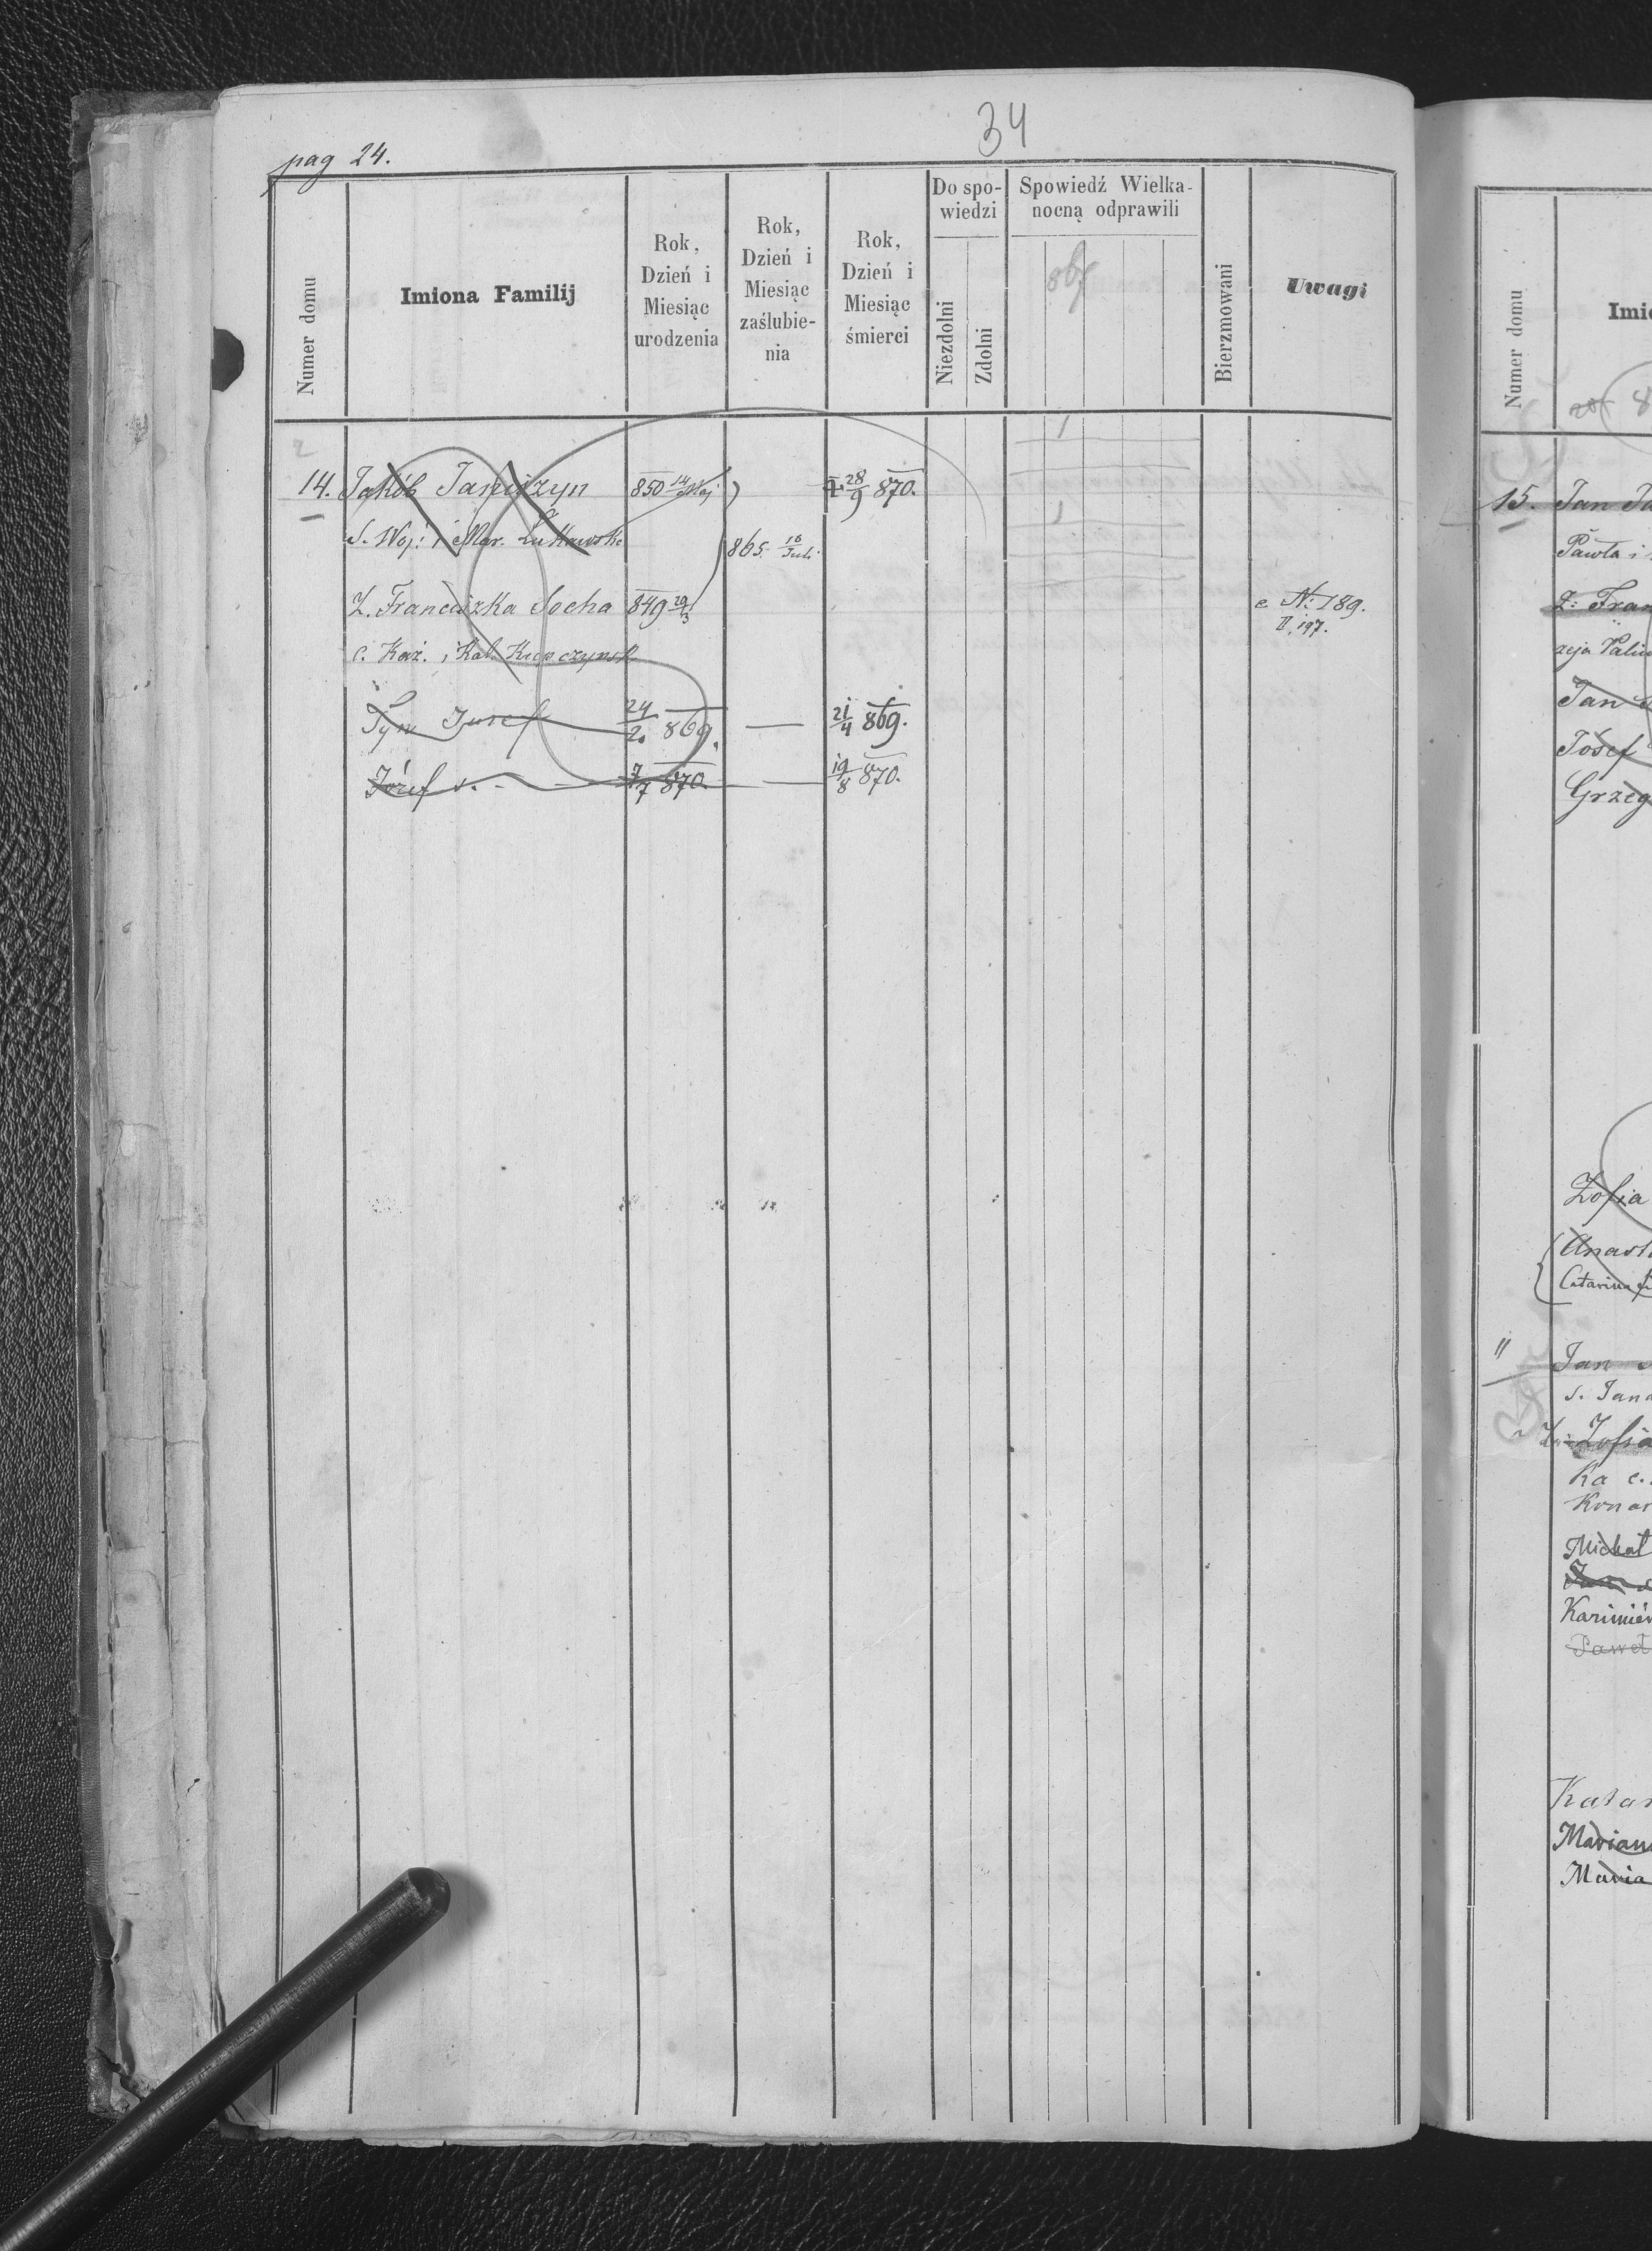 34
pag 24.
Numer domu
Imiona Familij
Rok, Dzień i Miesiąc urodzenia
Rok, Dzień i Miesiąc zaślubie-nia
Rok, Dzień i Miesiąc śmierci
Do spo-wiedzi
Niezdolni
Zdolni
Spowiedź Wielka-nocną odprawili
Bierzmowani
Uwagi
2
14. Jakób Janiszyn 850 14/Maj 28/9 870.
S. Woj: i Mar. Łukawsk
865. 16/Juli
Ż. Franciszka Socha 849 e N: 189.
II, 197.
c. Kaź. i Kat.
Syn Jusef 24/2. 869. — 21/4 869.
Józef s. — 7/7 870. — 19/8 870.
Numer domu
Imi
15. Jan Ja
Pawła i
Ż: Fran
Jan
Josef
Grzeg
Zofia
Anast
Catarina
" Jan
s. Jan
Ż: Zofia
ka c.
Konar
Michał
Kazimié
Paweł
Katar
Mariann
Maria